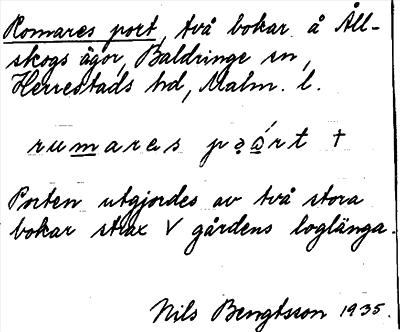 Romares port, två bokar å Åll-
skogs ägor, Baldringe sn,
Herrestads hd, Malm. l.
rumares pǫá̱rt †
Porten utgjordes av två stora
bokar strax V gårdens loglänga.
Nils Bengtsson 1935.